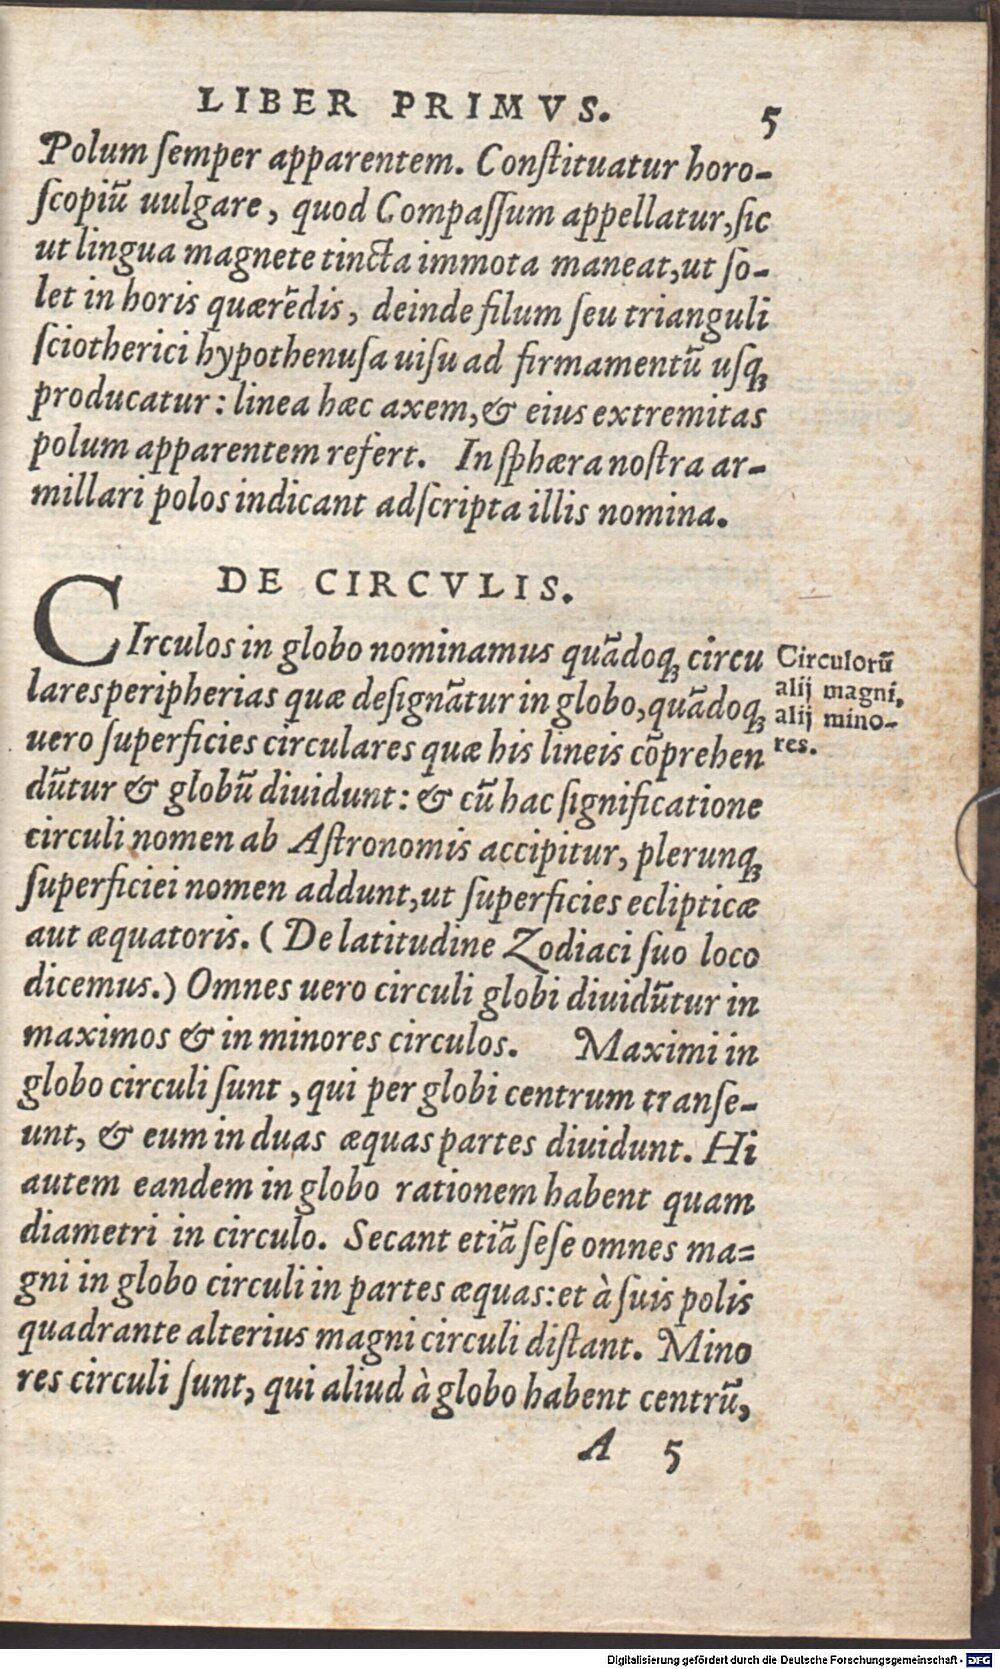 LIBER PRIMVS. 5
Polum ſemper apparentem. Conſtituatur horo-
ſcopiũ uulgare, quod Compaſſum appellatur, ſic
ut lingua magnete tincta immota maneat, ut ſo-
let in horis quærẽdis, deinde filum ſeu trianguli
ſciotherici hypothenuſa uiſu ad firmamentũ uſq;
producatur: linea hæc axem, & eius extremitas
polum apparentem refert. In ſphæra noſtra ar-
millari polos indicant adſcripta illis nomina.
DE CIRCVLIS.
CIrculos in globo nominamus quãdoq; circu
lares peripherias quæ deſignãtur in globo, quãdoq;
uero ſuperficies circulares quæ his lineis cõprehen
dũtur & globũ diuidunt: & cũ hac ſignificatione
circuli nomen ab Aſtronomis accipitur, plerunq;
ſuperficiei nomen addunt, ut ſuperficies eclipticæ
aut æquatoris. (De latitudine Zodiaci ſuo loco
dicemus.) Omnes uero circuli globi diuidũtur in
maximos & in minores circulos. Maximi in
globo circuli ſunt, qui per globi centrum tranſe-
unt, & eum in duas æquas partes diuidunt. Hi
autem eandem in globo rationem habent quam
diametri in circulo. Secant etiã ſeſe omnes ma=
gni in globo circuli in partes æquas: et à ſuis polis
quadrante alterius magni circuli diſtant. Mino
res circuli ſunt, qui aliud à globo habent centrũ,
A 5
Circulorũ
alij magni,
alij mino-
res.
Digitalisierung gefördert durch die Deutsche Forschungsgemeinschaft - DFG